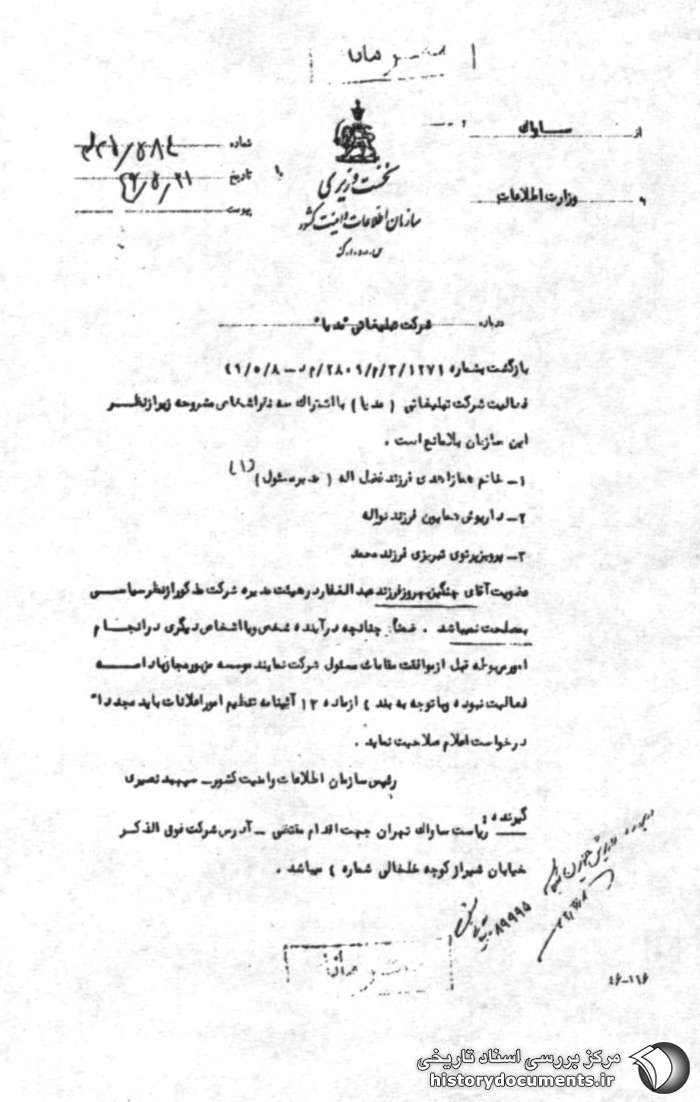 از ساواک
به وزارت اطلاعات
نخست وزیری
سازمان اطلاعات و امنیت کشور
س.ا.و.ا.ک
شماره
تاریخ
پیوست
درباره شرکت تبلیغاتی "مدیا"
بازگشت بشماره
فعالیت شرکت تبلیغاتی ( مدیا ) با اشتراک سه نفر اشخاص مشروحه زیر از نظر
این سازمان بلامانع است .
۱- خانم هما زاهدی فرزند فضل اله ( مدیر مسئول ) (۱)
۲- داریوش همایون فرزند نوراله
۳- پرویز پرتوی تبریزی فرزند محمد
عضویت آقای چنگیز بهروز فرزند عبدالغفار در هیئت مدیره شرکت مذکور از نظر سیاسی
بمصلحت نمیباشد . ضمناً چنانچه در آینده شخص و یا اشخاص دیگری در انجام
امور مربوطه قبل از موافقت مقامات مسئول شرکت نمایند موسسه مزبور مجاز بادامه
فعالیت نبوده و با توجه به بند ۴ از ماده ۱۲ آئینامه تنظیم امور اعلانات باید مجدداً"
درخواست اعلام صلاحیت نماید .
رئیس سازمان اطلاعات و امنیت کشور- سپهبد نصیری
گیرنده :
ریاست ساواک تهران جهت اقدام مقتضی - آدرس شرکت فوق الذکر
خیابان شیراز کوچه خلخالی شماره ۴ میباشد .
۸۹۹۹۵
۴۶-۱۱۶
مرکز بررسی اسناد تاریخی
historydocuments.ir